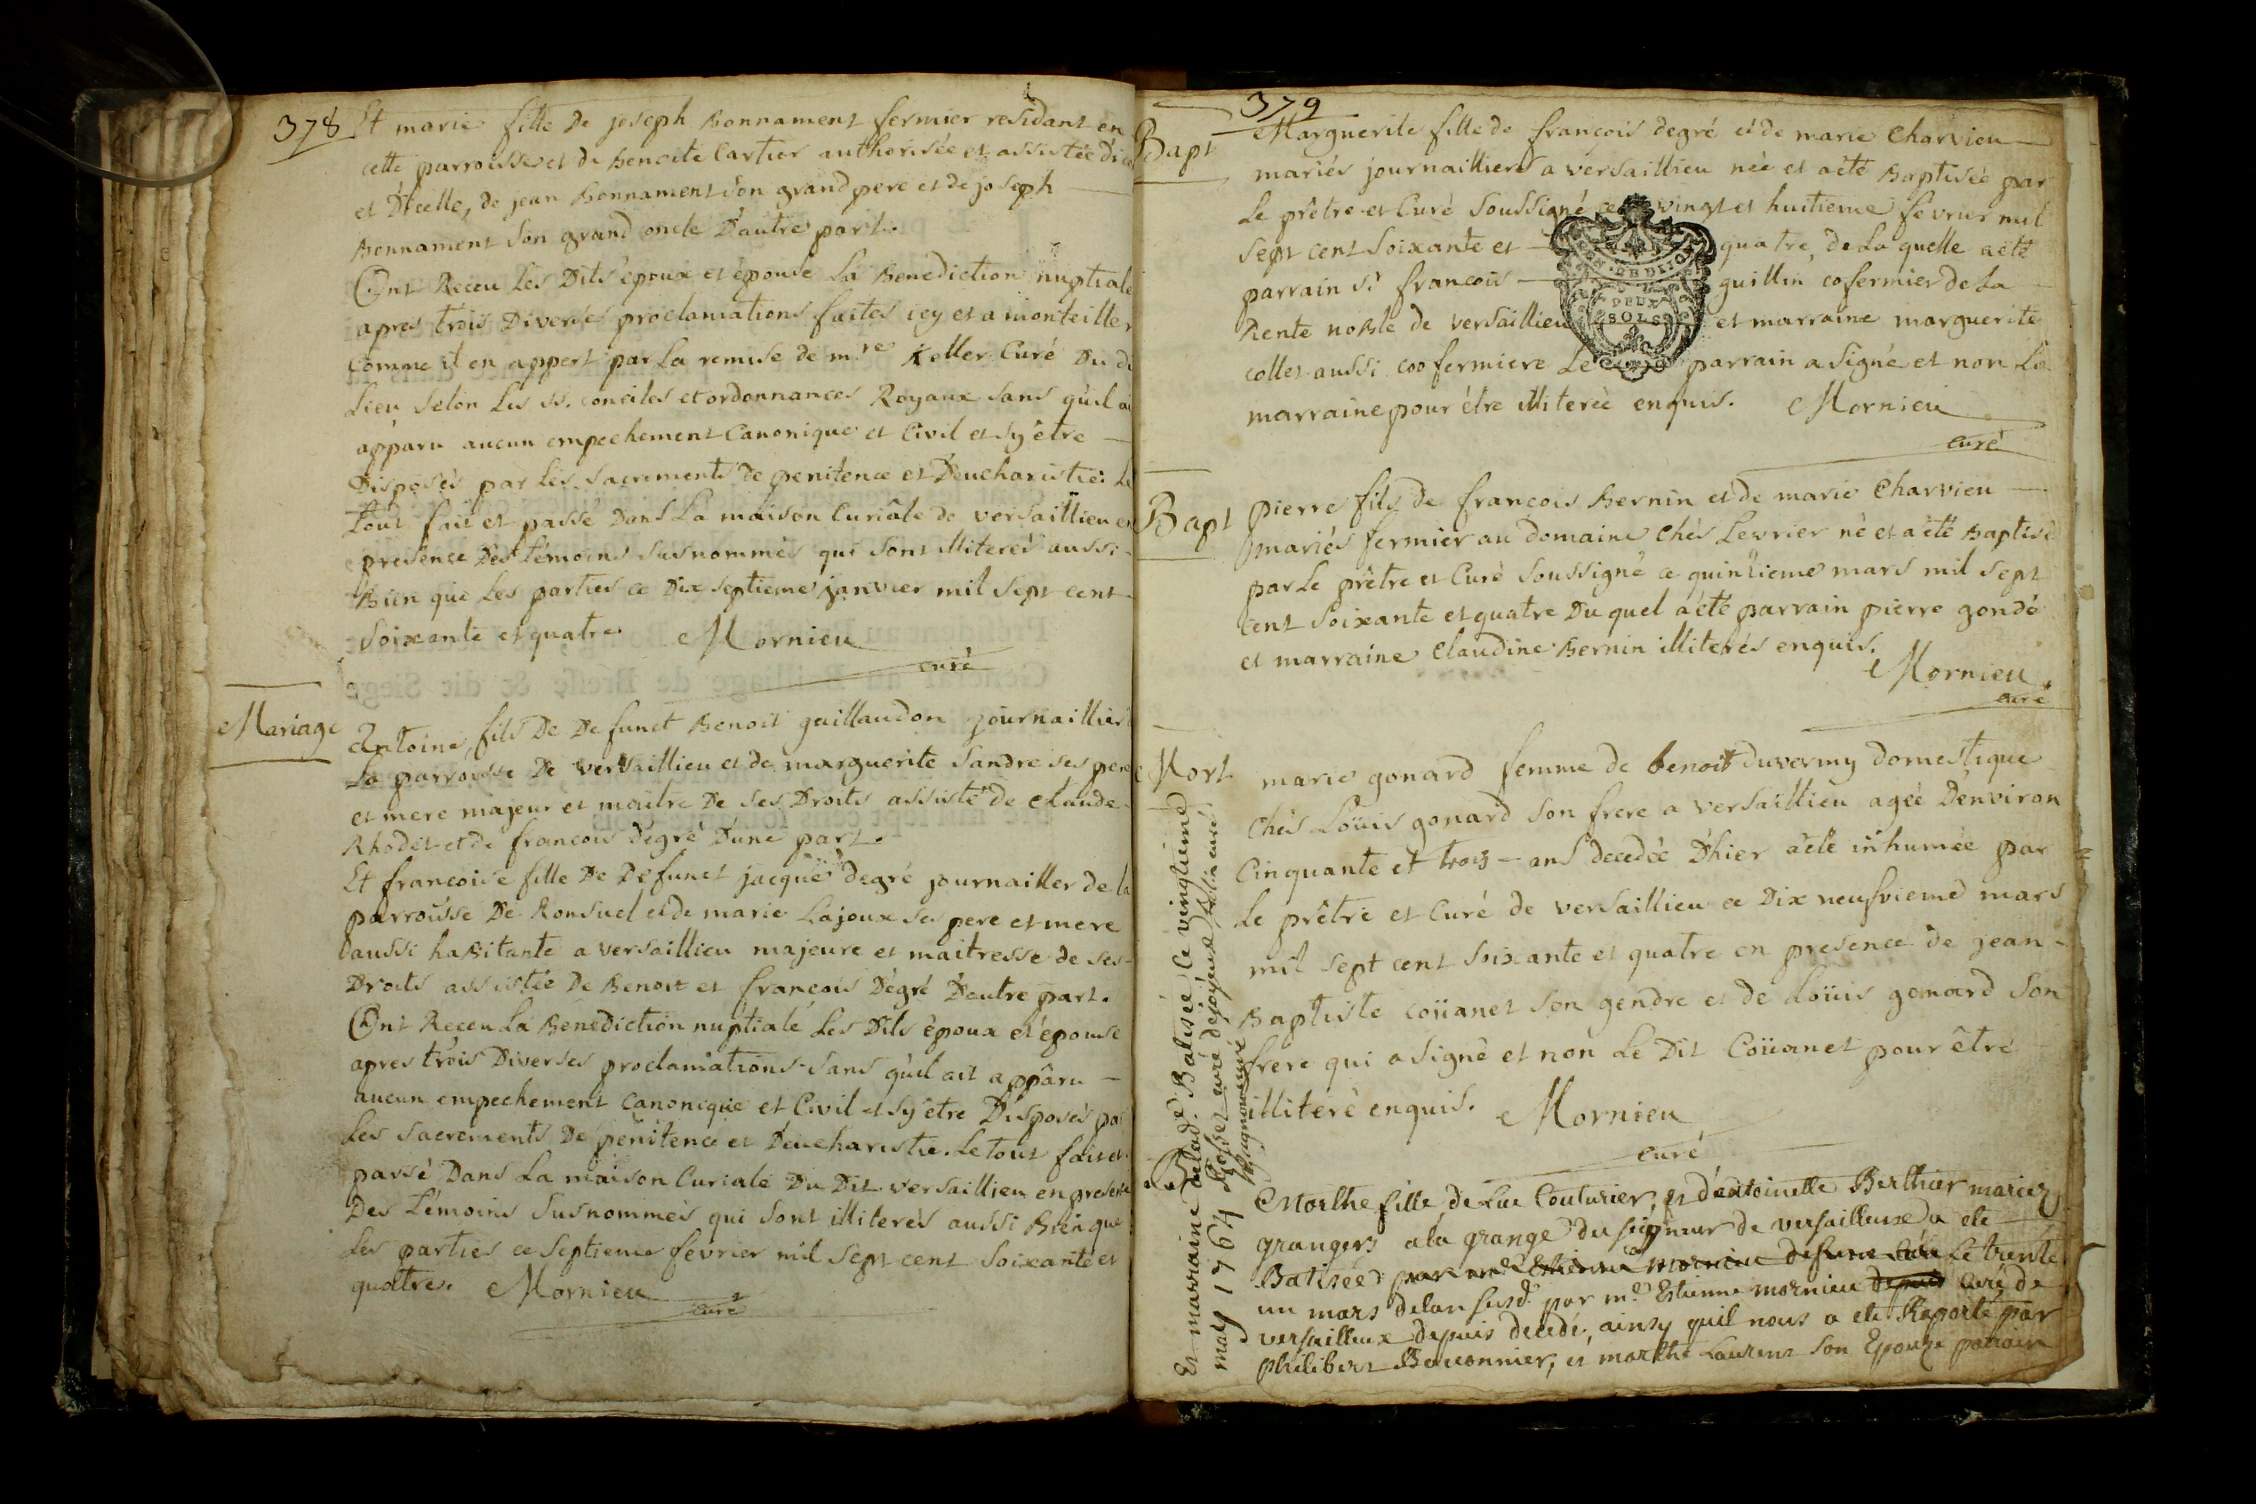 378
Et marie fille De joseph Bonnament fermier residant en
cette parroisse et de Benoite Cartier authorisée et assistée d'i
et D'icelle, de jean Bonnament son grand pere et de joseph
Bonnament son grand oncle D'autre part.
Ont Receu les Dits époux et épouse la Benediction nuptiale
apres trois Diverses proclamations faites icy et a monteiller
Comme il en appert par La remise de m.re Keller Curé Du di
Lieu selon les ss. conciles et ordonnances Royaux sans qu'il ai
apparu aucun empechement Canonique et Civil et sy être
Disposés par les sacrements de penitence et D'eucharistie: Le
tout fait et passé Dans La maison Curiale de versaillieu en
presence Des témoins susnommés qui sont illiterés aussi
Bien que Les parties ce Dix septieme janvier mil sept cent
soixante et quatre. Mornieu
curé
Mariage
Antoine fils De Defunct Benoit guillaudon journaillier
La parroisse De versaillieu et de marguerite Sandre ses pere
et mere majeur et maitre De ses Droits assisté de Claude
Rhodet et de francois degré D'une part.
Et francoise fille De Defunct jacque degré journailler de la
parroisse De Ronsuel et de marie Lajoux ses pere et mere
aussi haBitante a versaillieu majeure et maitresse de ses
Droits assistée De Benoit et francois Degré D'autre part.
Ont Receu La Benediction nuptiale Les Dits époux et épouse
apres trois Diverses proclamations sans qu'il ait apparu
aucun empechement canonique et Civil et sy être Disposés par
Les sacrements De penitence et D'eucharistie. Le tout fait et
passé Dans La maison Curiale Du Dit versaillieu en presence
Des témoins susnommés qui sont illiterés aussi Bien que
Les parties ce septieme fevrier mil sept cent soixante et
quatre. Mornieu
curé
379
Bapt
Marguerite fille de françois degré et de marie Charvieu
mariés journailliers a versaillieu née et a été Baptisée par
Le prêtre et Curé soussigné ce vingt et huitieme fevrier mil
sept cent soixante et quatre, de La quelle a été
parrain s.r francois guillin cofermier de La
Rente noBle de versaillieu et marraine marguerite
collet aussi coofermiere Le parrain a signé et non La
marraine pour être illiterée enquis. Mornieu
curé
DEUX
SOLS
Bapt
pierre fils de françois Bernin et de marie Charvieu
mariés fermier au domaine Chés Levrier né et a été Baptisé
par Le prêtre et Curé soussigné ce quinzieme mars mil sept
cent soixante et quatre Du quel a été parrain pierre gondé
et marraine Claudine Bernin illiterés enquis.
Mornieu
curé
Mort
marie gonard femme de benoit duvermy domestique
chés Loüis gonard son frere a versaillieu agée D'environ
Cinquante et trois ans decedée D'hier a été inhumée par
Le prêtre et Curé de versaillieu ce Dix neufvieme mars
mil sept cent soixante et quatre en presence de jean
Baptiste coüanet son gendre et de Loüis gonard son
frere qui a signé et non Le Dit Coüanet pour être
illiteré enquis. Mornieu
curé
B
Marthe fille de Luc Couturier, et d'antoinette Berthier mariez
grangers a la grange du seigneur de versailleux a ete
Batisée par m.e Estienne mornieu defunt Curé Le trente
un mars de lan susd. par m.e Estienne mornieu depuis curé de
versailleux depuis decedé, ainsy quil nous a ete Raporté par
philibert Baconnier, et marthe Laurent son Epouze parain
Et marraine de lad. Batisée ce vingtieme
may 1764